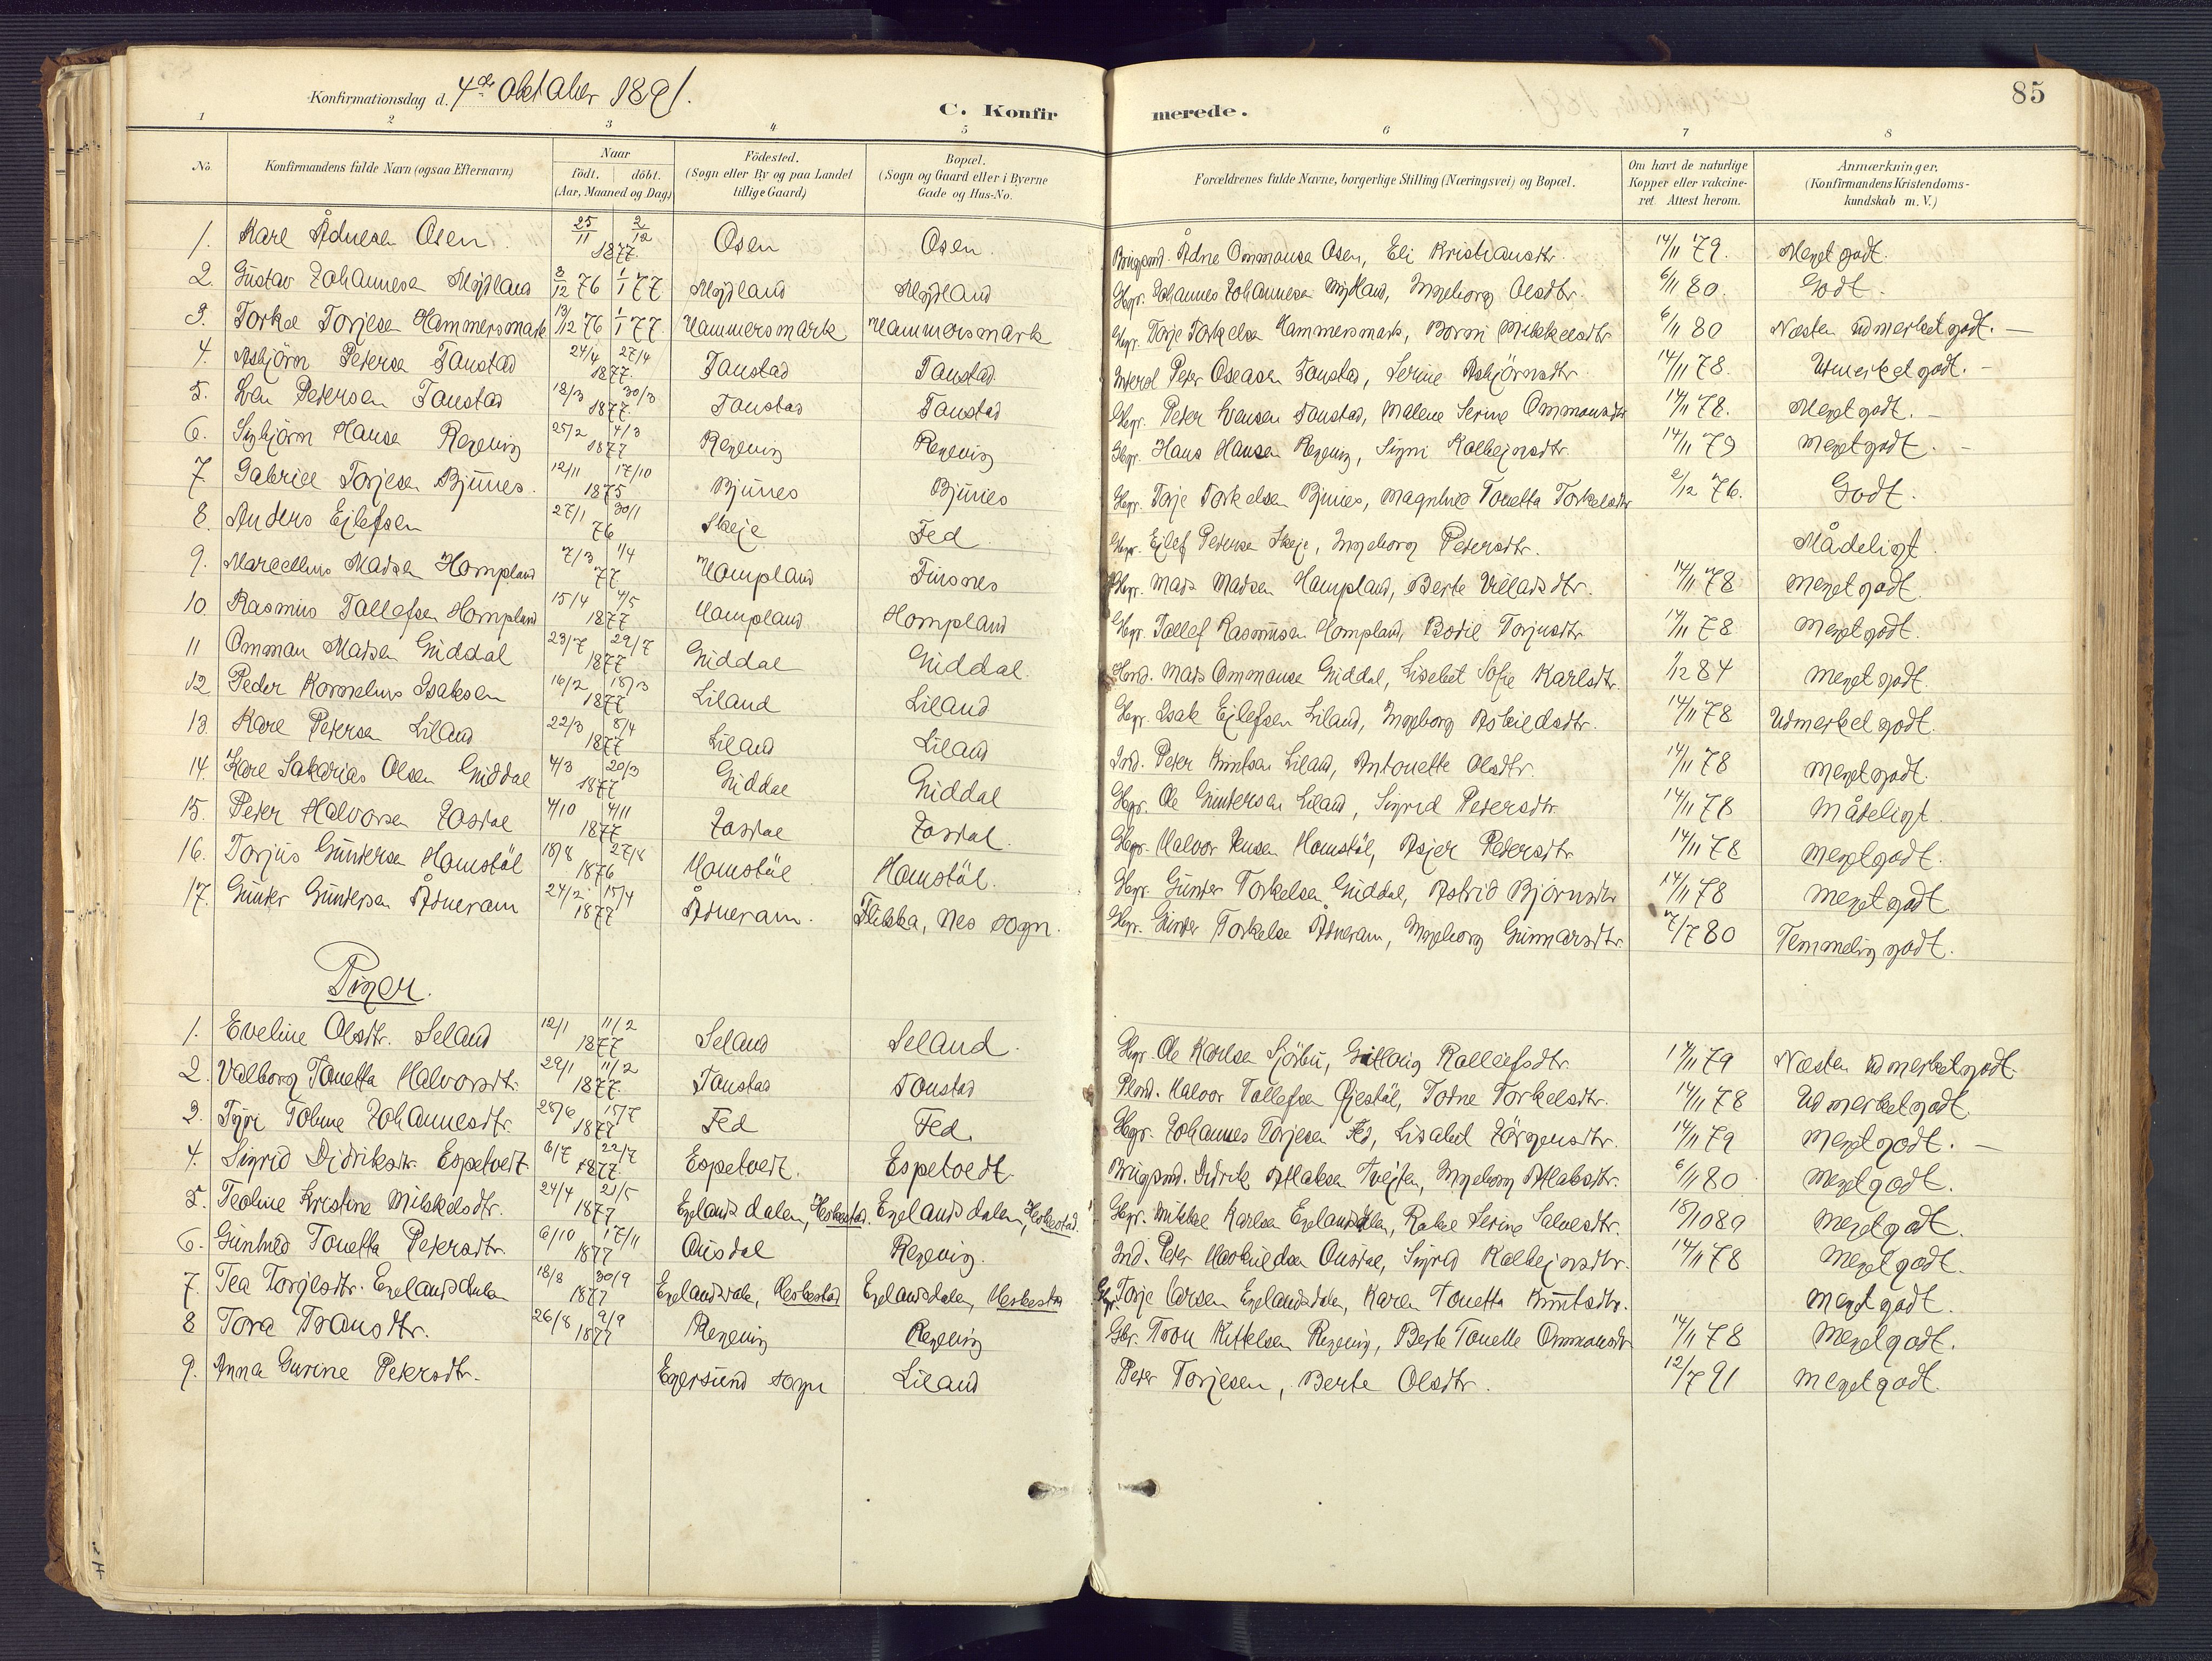 Konfirmationsdag d. 4de Oktober 1891.
C. Konfirmerede.
85
1 2 3 4 5 6 7 8
No. Konfirmandens fulde Navn (ogsaa Efternavn) Naar født. døbt. (Aar, Maaned og Dag) Födested. (Sogn eller By og paa Landet tillige Gaard) Bopæl. (Sogn og Gaard eller i Byerne Gade og Hus-No. Forældrenes fulde Navne, borgerlige Stilling (Næringsvei) og Bopæl. Om havt de naturlige Kopper eller vakcineret. Attest herom. Anmærkninger. (Konfirmandens Kristendomskundskab m. V.)
1. Karl Ådnesen Osen 25/11 2/12 1877. Osen Osen. Brugsmd. Ådne Ommonsen Osen, Eli Kristiansdtr. 14/11 79. Meget godt.
2. Gustav Johannesen Mydland 3/12 76 1/1 77 Mydland Mydland Gbr. Johannes Johannesen Mydland, Ingeborg Olsdtr. 6/11 80. Godt.
3. Torkel Torjesen Hammersmark 13/12 76 1/1 77. Hammersmark Hammersmark Gbr. Torje Torkelsen Hammersmark, Borni Mikkelsdtr. 6/11 80 Næsten udmerket godt. —
4. Asbjörn Petersen Tonstad 24/4 27/4 1877. Tonstad Tonstad. Peter Oseasen Tonstad, Serine Asbjörnsdtr. 14/11 78. Udmerket godt. -
5. Sven Petersen Tonstad 18/3 30/3 1877. Tonstad Tonstad Gbr. Peter Svensen Tonstad, Malene Serine Ommonsdtr 14/11 78. Meget godt. -
6. Sigbjörn Hansen Regevig 25/2 4/3 1877 Regevig Regevig Gbr. Hans Hansen Regevig, Signi Kolbejnsdtr. 14/11 79 Meget godt. -
7. Gabriel Torjesen Bjunes. 12/11 17/10 1875 Bjunes Bjunes Gbr. Torje Torkelsen Bjunes, Magnhild Tonetta Torkelsdtr 2/12 76. Godt.
8. Anders Ejlefsen 27/1 30/1 76 Skeje Fed Gbr. Ejlef Petersen Skeje, Ingeborg Petersdtr. Mådeligt.
9. Marcellius Madsen Hompland 7/3 1/4 77 Hompland Finsnes Gbr. Mads Madsen Hompland, Berte Villadsdtr. 14/11 78 Meget godt.
10. Rasmus Tallefsen Hompland 15/4 4/5 1877 Hompland Hompland Gbr. Tallef Rasmusen Hompland, Bodil Torjusdtr 14/11 78 Meget godt.
11 Omman Madsen Guddal 23/7 29/7 1877 Guddal Guddal. Mads Ommonsen Guddal, Lisebet Sofie Karlsdtr. 1/12 84 Meget godt.
12 Peder Kornelius Isaksen 16/2 18/3 1877 Liland Liland Gbr. Isak Ejlefsen Liland, Ingeborg Askildsdtr. 14/11 78 Udmerket godt.
13. Karl Petersen Liland 22/3 8/4 1877 Liland Liland Ind. Peter Knutsen Liland, Antonette Olsdtr. 14/11 78 Meget godt.
14. Karl Sakarias Olsen Guddal 4/3 20/3 1877 Guddal Guddal Gbr. Ole Guntersen Liland, Sigrid Petersdtr. 14/11 78 Mådeligt.
15. Peter Halvorsen Josdal 4/10 4/11 1877 Josdal Josdal. Gbr. Halvor Jensen Homstöl, Asjer Petersdtr 14/11 78 Meget godt.
16. Torjus Guntersen Homstöl 18/8 27/8 1876 Homstöl Homstöl. Gbr. Gunter Torkelsen Guddal, Astrid Björnsdtr 14/11 78 Meget godt
17. Gunter Guntersen Ådneram 24/2 15/4 1877 Ådneram. Flikka, Nes sogn. Gbr. Gunter Torkelsen Ådneram, Ingeborg Gunnarsdtr. 7/7 80 Temmelig godt.
Piger.
1. Eveline Olsdtr. Seland 12/1 11/2 1877 Seland Seland. Gbr. Ole Karlsen Sjöbu, Gullaug Rolleifsdtr. 14/11 79 Næsten udmerket godt.
2. Valborg Tonetta Halvorsdtr. 29/1 11/2 1877. Tonstad Tonstad Halvor Tallefsen Öjestöl, Todne Torkelsdtr. 14/11 78 Udmerket godt.
3. Tyri Toline Johannesdtr. 25/6 15/7 1877 Fed Fed. Gbr. Johannes Torjesen Fed, Lisabet Jörgensdtr. 14/11 79 Meget godt. —
4. Sigrid Didriksdtr. Espetvedt 6/7 22/7 1877. Espetvedt. Espetvedt. Brugsmd. Didrik Aslaksen Tvejten, Ingeborg Aslaksdtr. 6/11 80 Meget godt.
5. Teoline Kristine Mikkelsdtr. 24/4 21/5 1877 Egelandsdalen, Herbestad. Egelandsdalen, Herbestad. Gbr. Mikkel Karlsen Egelandsdalen, Rakel Serine Salvesdtr. 18/10 89 Meget godt.
6. Gunhild Tonetta Petersdtr. 6/10 17/11 1877 Ousdal Regevig. Ind. Peter Haskildsen Ousdal, Sigrid Kolbejnsdtr. 14/11 78 Meget godt.
7. Tea Torjesdtr. Egelandsdalen 18/8 30/9 1877 Egelandsdalen, Herbestad Egelandsdalen, Herbestad Gbr. Torje Larsen Egelandsdalen, Karen Tonetta Knutsdtr. Meget godt.
8 Tora Tronsdtr. 26/8 9/9 1877 Regevig Regevig Gbr. Tron Kittelsen Regevig, Berte Tonette Ommonsdtr 14/11 78 Meget godt.
9. Anna Gurine Petersdtr. Egersund sogn Liland Peter Torjesen, Berte Olsdtr. 12/7 91 Meget godt.